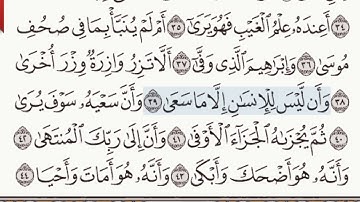 ٣٤ أَعِندَهُۥ عِلْمُ ٱلْغَيْبِ فَهُوَ يَرَىٰٓ ٣٥ أَمْ لَمْ يُنَبَّأْ بِمَا فِى صُحُفِ
مُوسَىٰ ٣٦ وَإِبْرَٰهِيمَ ٱلَّذِى وَفَّىٰٓ ٣٧ أَلَّا تَزِرُ وَازِرَةٌ وِزْرَ أُخْرَىٰ
٣٨ وَأَن لَّيْسَ لِلْإِنسَٰنِ إِلَّا مَا سَعَىٰ ٣٩ وَأَنَّ سَعْيَهُۥ سَوْفَ يُرَىٰ
٤٠ ثُمَّ يُجْزَىٰهُ ٱلْجَزَآءَ ٱلْأَوْفَىٰ ٤١ وَأَنَّ إِلَىٰ رَبِّكَ ٱلْمُنتَهَىٰ ٤٢
وَأَنَّهُۥ هُوَ أَضْحَكَ وَأَبْكَىٰ ٤٣ وَأَنَّهُۥ هُوَ أَمَاتَ وَأَحْيَا ٤٤